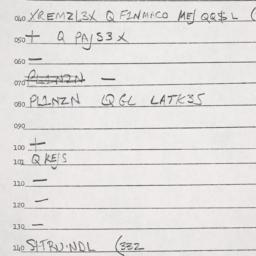 040 YREMZL3X Q F1NMACO MEJ QQ$L (
050 + Q PAJS3X
060 —
070 PL1NZN —
080 PL1NZN QGL LATK35
090
100 +
101 QKE/S
110 —
120 —
130 —
140 S/TRU·NDL (33Z